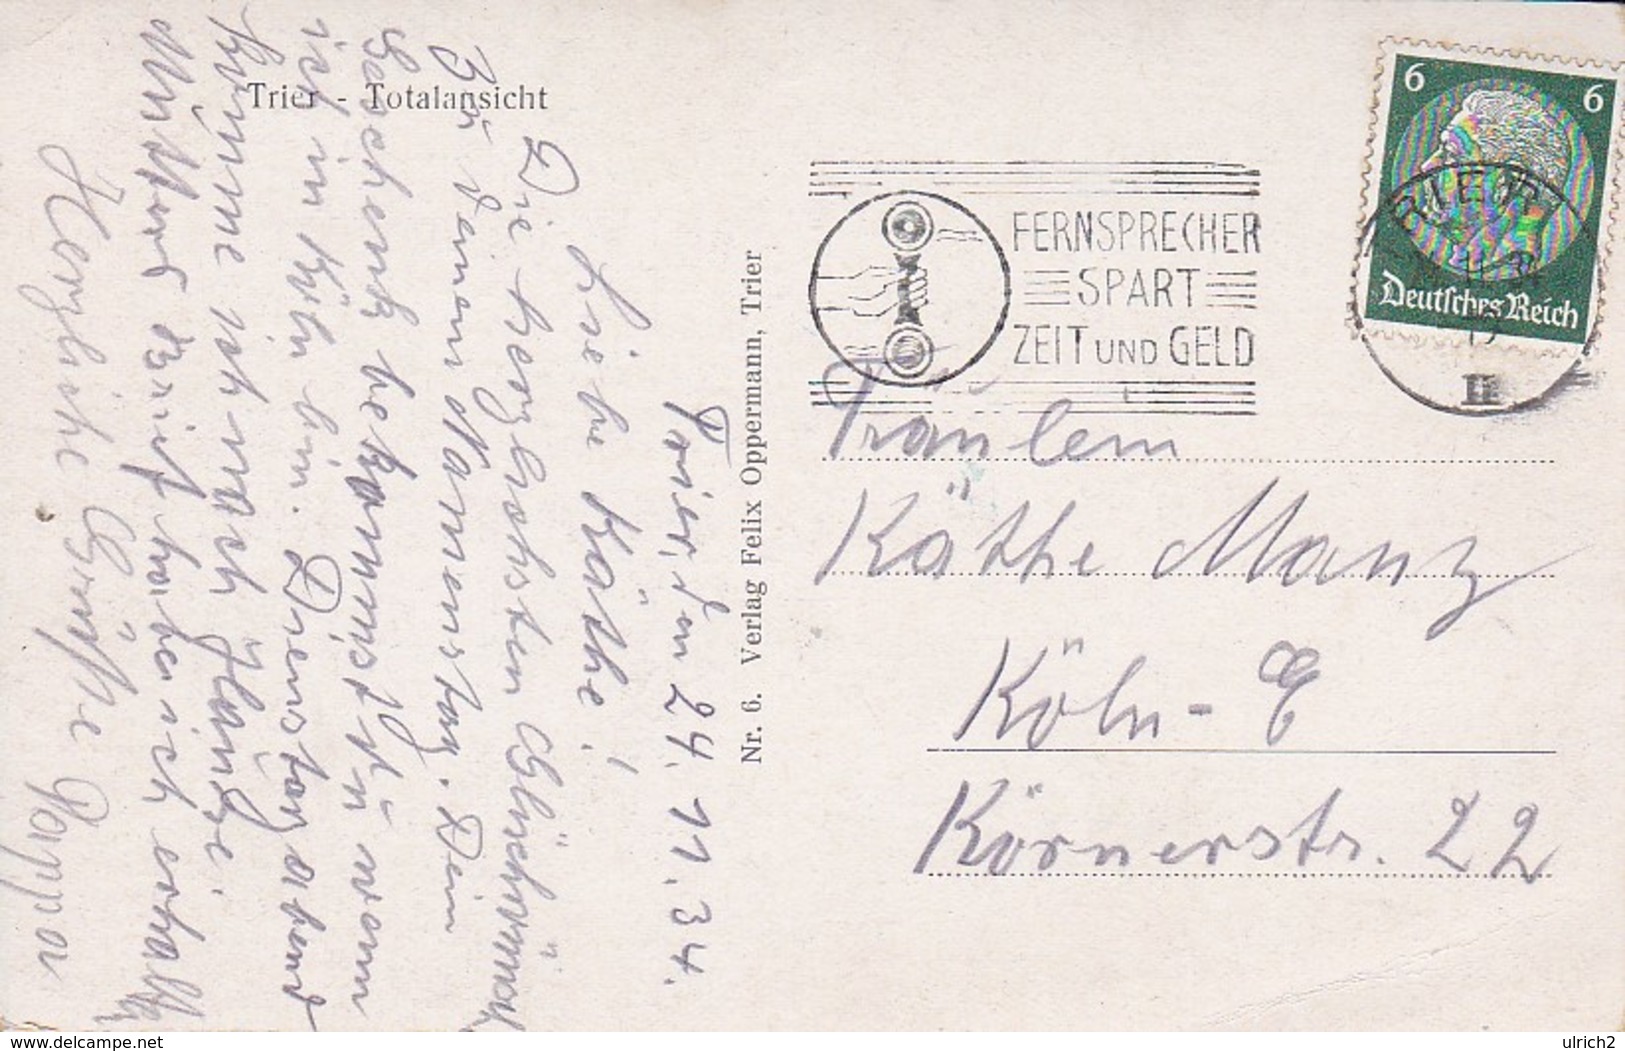 Trier - Totalansicht
Trier, den 24. 11. 34.
Liebe Käthe!
Die herzlichsten Glückwünsch
zu Deinem Namenstag. Dein
Geschenk bekommst Du wenn
ich in Köln bin. Dienstag abend
komme ich nach Hause.
Mutters Brief habe ich erhalt
Herzliche Grüße Pappa
Nr. 6. Verlag Felix Oppermann, Trier
FERNSPRECHER
SPART
ZEIT UND GELD
6 6
Deutsches Reich
II
Fräulein
Käthe Manz
Köln - E
Körnerstr. 22
www.delcampe.net
ulrich2